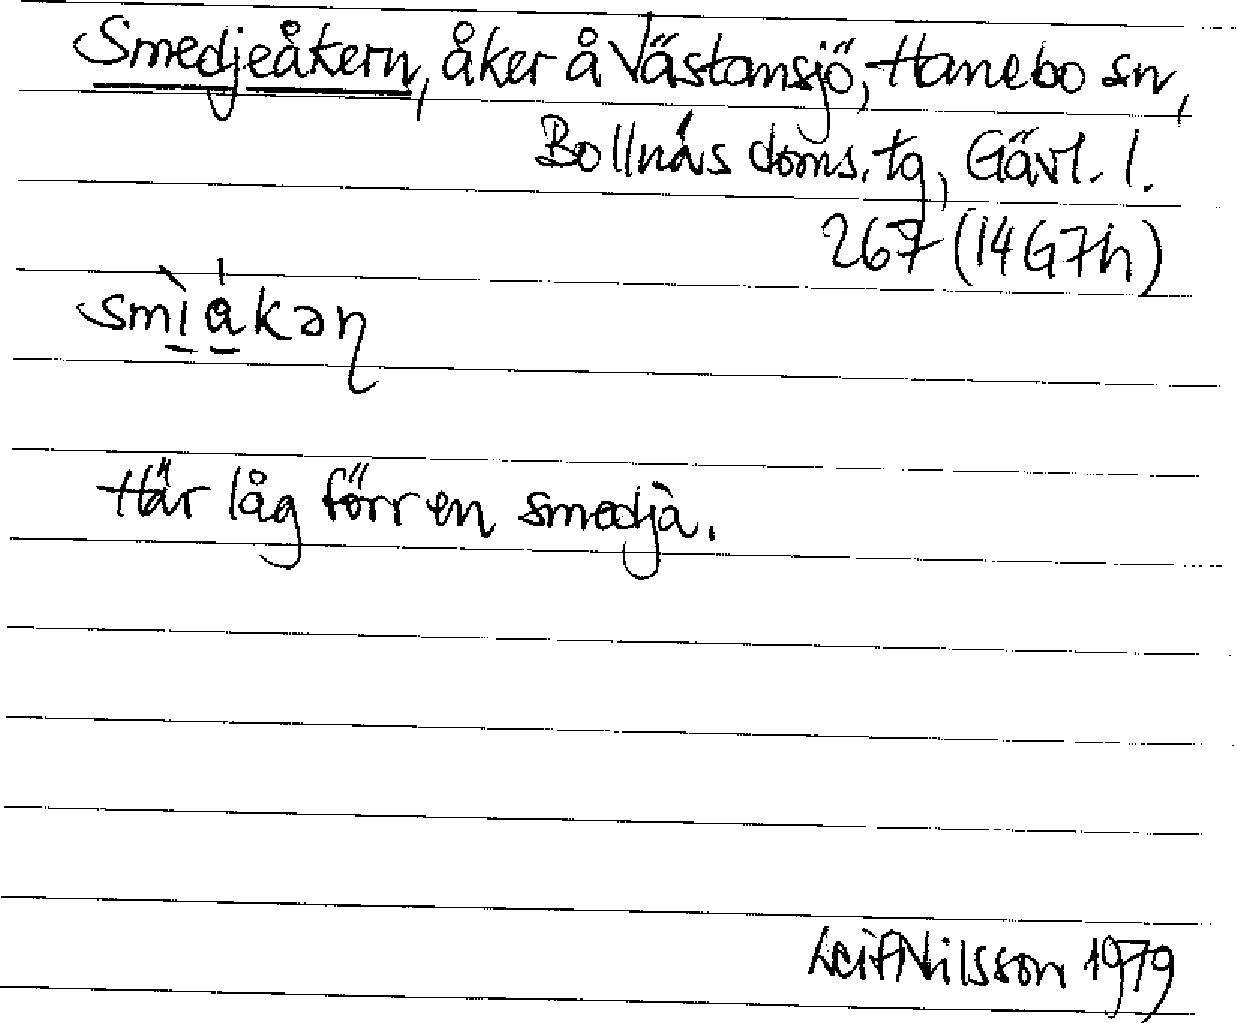 Smedjeåkern, åker å Västansjö, Hanebo sn,
Bollnäs doms. tg, Gävl. l.
267 (14G7h)
smìa̍kəɳ
Här låg förr en smedja.
Leif Nilsson 1979